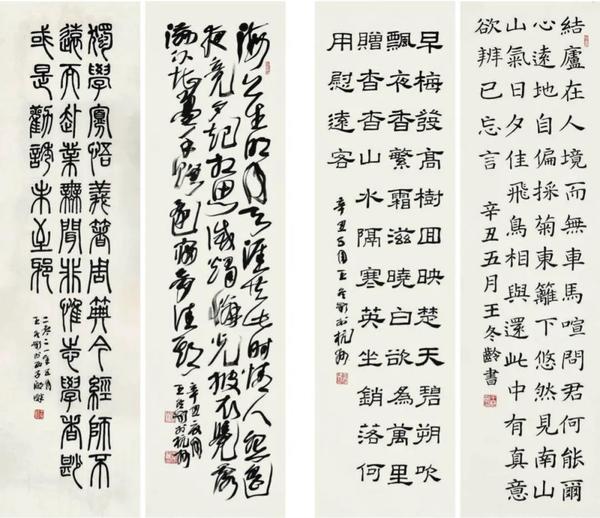 結廬在人境而無車馬喧問君何能爾
心遠地自偏採菊東籬下悠然見南山
山氣日夕佳飛鳥相與還此中有真意
欲辨已忘言 辛丑五月王冬齡書
早梅發高樹迥映楚天碧朔吹
飄夜香繁霜滋曉白欲為萬里
贈杳杳山水隔寒英坐銷落何
用慰遠客
辛丑五月王冬齡於杭州
海上生明月天涯共此時情人怨遙
夜竟夕起相思滅燭憐光滿披衣覺露
滋不堪盈手贈還寢夢佳期
辛丑夏月
王冬齡於杭州
獨學寡悟義著周典今經師不
遠而赴業無聞非惟志學者尟
或是勸誘未至邪
二〇二一年五月
王冬齡於西子湖畔